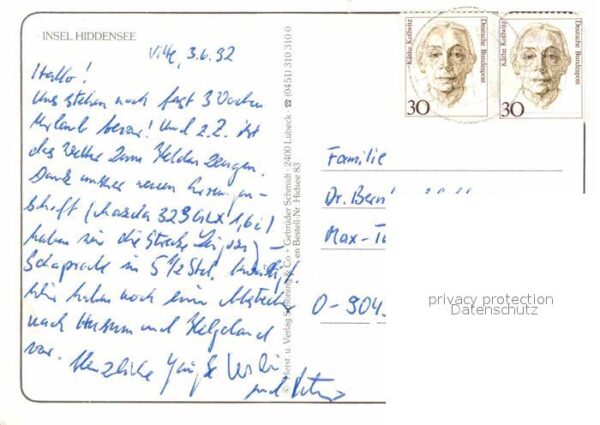 INSEL HIDDENSEE
Vitte, 3.6.92
Hallo!
Uns stehen noch fast 3 Wochen
Urlaub bevor! Und z.Z. ist
das Wetter zum Helden Zeugen.
Dank unserer neuen
(Mazda 323 GLX 1,6i)
haben wir die Strecke
Schaprode in 5 1/2 Std. bewältigt.
Wir haben noch einen Abstecher
nach Husum und Helgoland
vor. Herzliche Grüße
und
© Herst. u. Verlag Schöning & Co + Gebrüder Schmidt · 2400 Lübeck · ☎ (0451) 310 310 0
Bestell-Nr. Hidsee 83
Käthe Kollwitz
Deutsche Bundespost
30
Käthe Kollwitz
Deutsche Bundespost
30
Familie
Dr.
Max-
O-904
privacy protection
Datenschutz